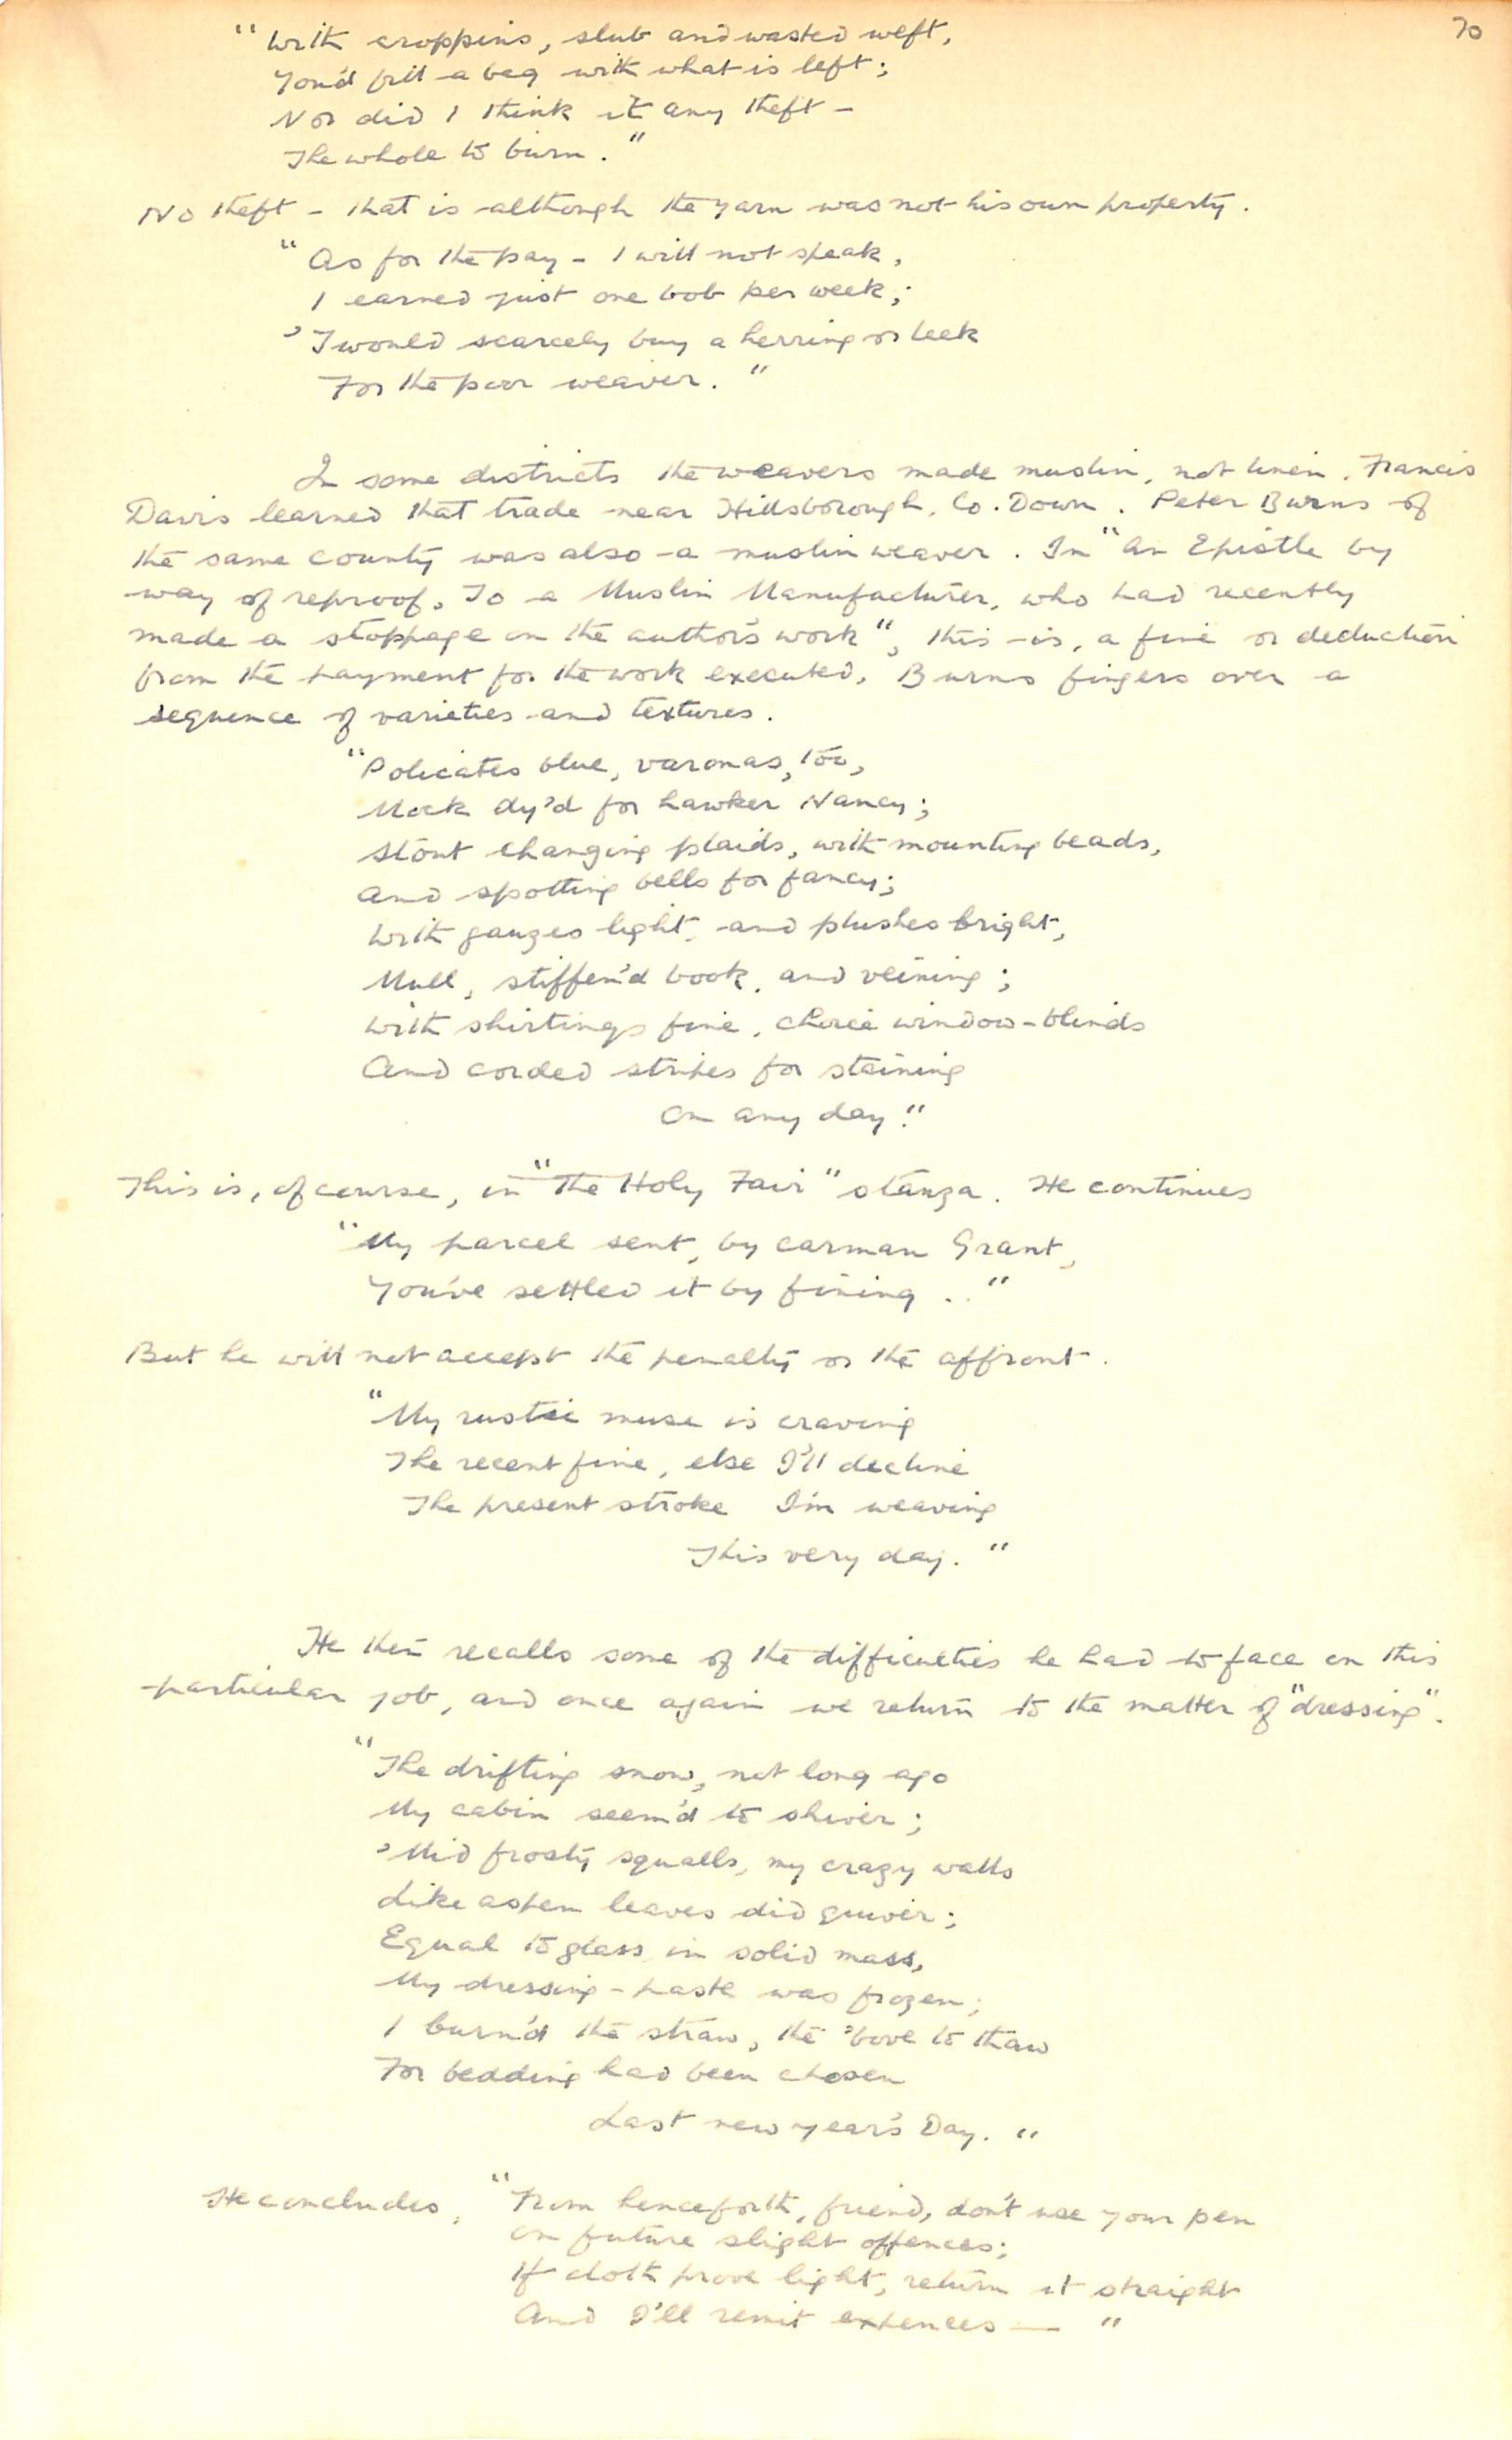 70
"With croppins, slub and wasted weft,
You'd fill a beg with what is left;
Nor did I think it any theft –
The whole to burn."
No theft – that is although the yarn was not his own property.
"As for the pay – I will not speak,
I earned just one bob per week;
'Twould scarcely buy a herring or leek
For the poor weaver."
In some districts the weavers made muslin, not linen. Francis
Davis learned that trade near Hillsborough, Co. Down. Peter Burns of
the same county was also a muslin weaver. In "An Epistle by
way of reproof, To a Muslin Manufacturer, who had recently
made a stoppage on the author's work", this is, a fine or deduction
from the payment for the work executed, Burns fingers over a
sequence of varieties and textures.
"Policates blue, varonas, too,
Mock dy'd for hawker Nancy;
Stout changing plaids, with mounting beads,
And spotting bells for fancy;
With gauzes light, and plushes bright,
Mull, stiffen'd book, and veining;
With shirtings fine, choice window-blinds
And corded stripes for staining
On any day."
This is, of course, in "The Holy Fair" stanza. He continues
"My parcel sent, by carman Grant,
You've settled it by fining . ."
But he will not accept the penalty or the affront.
"My rustic muse is craving
The recent fine, else I'll decline
The present stroke I'm weaving
This very day."
He then recalls some of the difficulties he had to face on this
particular job, and once again we return to the matter of "dressing".
"The drifting snow, not long ago
My cabin seem'd to shiver;
'Mid frosty squalls, my crazy walls
Like aspen leaves did quiver;
Equal to glass in solid mass,
My dressing-paste was frozen;
I burn'd the straw, the 'bove to thaw
For bedding had been chosen
Last new year's Day."
He concludes, "From henceforth, friend, don't use your pen
On future slight offences;
If cloth prove light, return it straight
And I'll remit expences — "